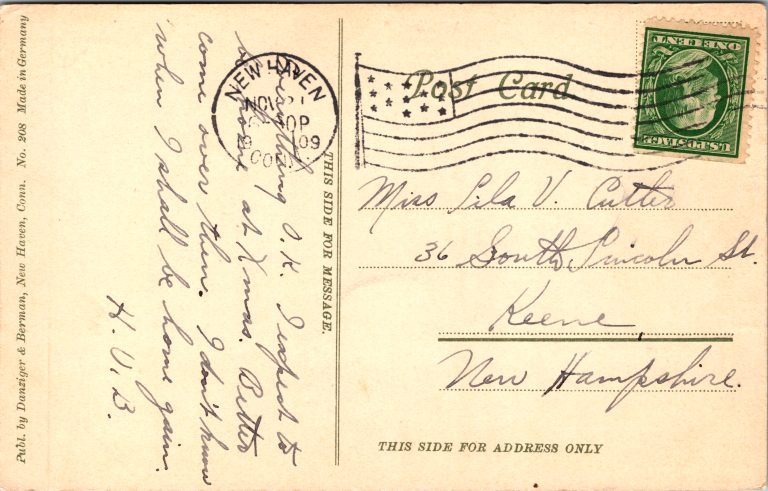 Post Card
NEW HAVEN
NOV 21
30P
09
CONN
U.S. POSTAGE
ONE CENT
THIS SIDE FOR MESSAGE.
Everything O.K. I expect to
be home at Xmas. Better
come over then. I don't know
when I shall be home again.
H. V. B.
Miss Lila V. Cutler
36 South Lincoln St.
Keene,
New Hampshire.
THIS SIDE FOR ADDRESS ONLY
Publ. by Danziger & Berman, New Haven, Conn. No. 208 Made in Germany